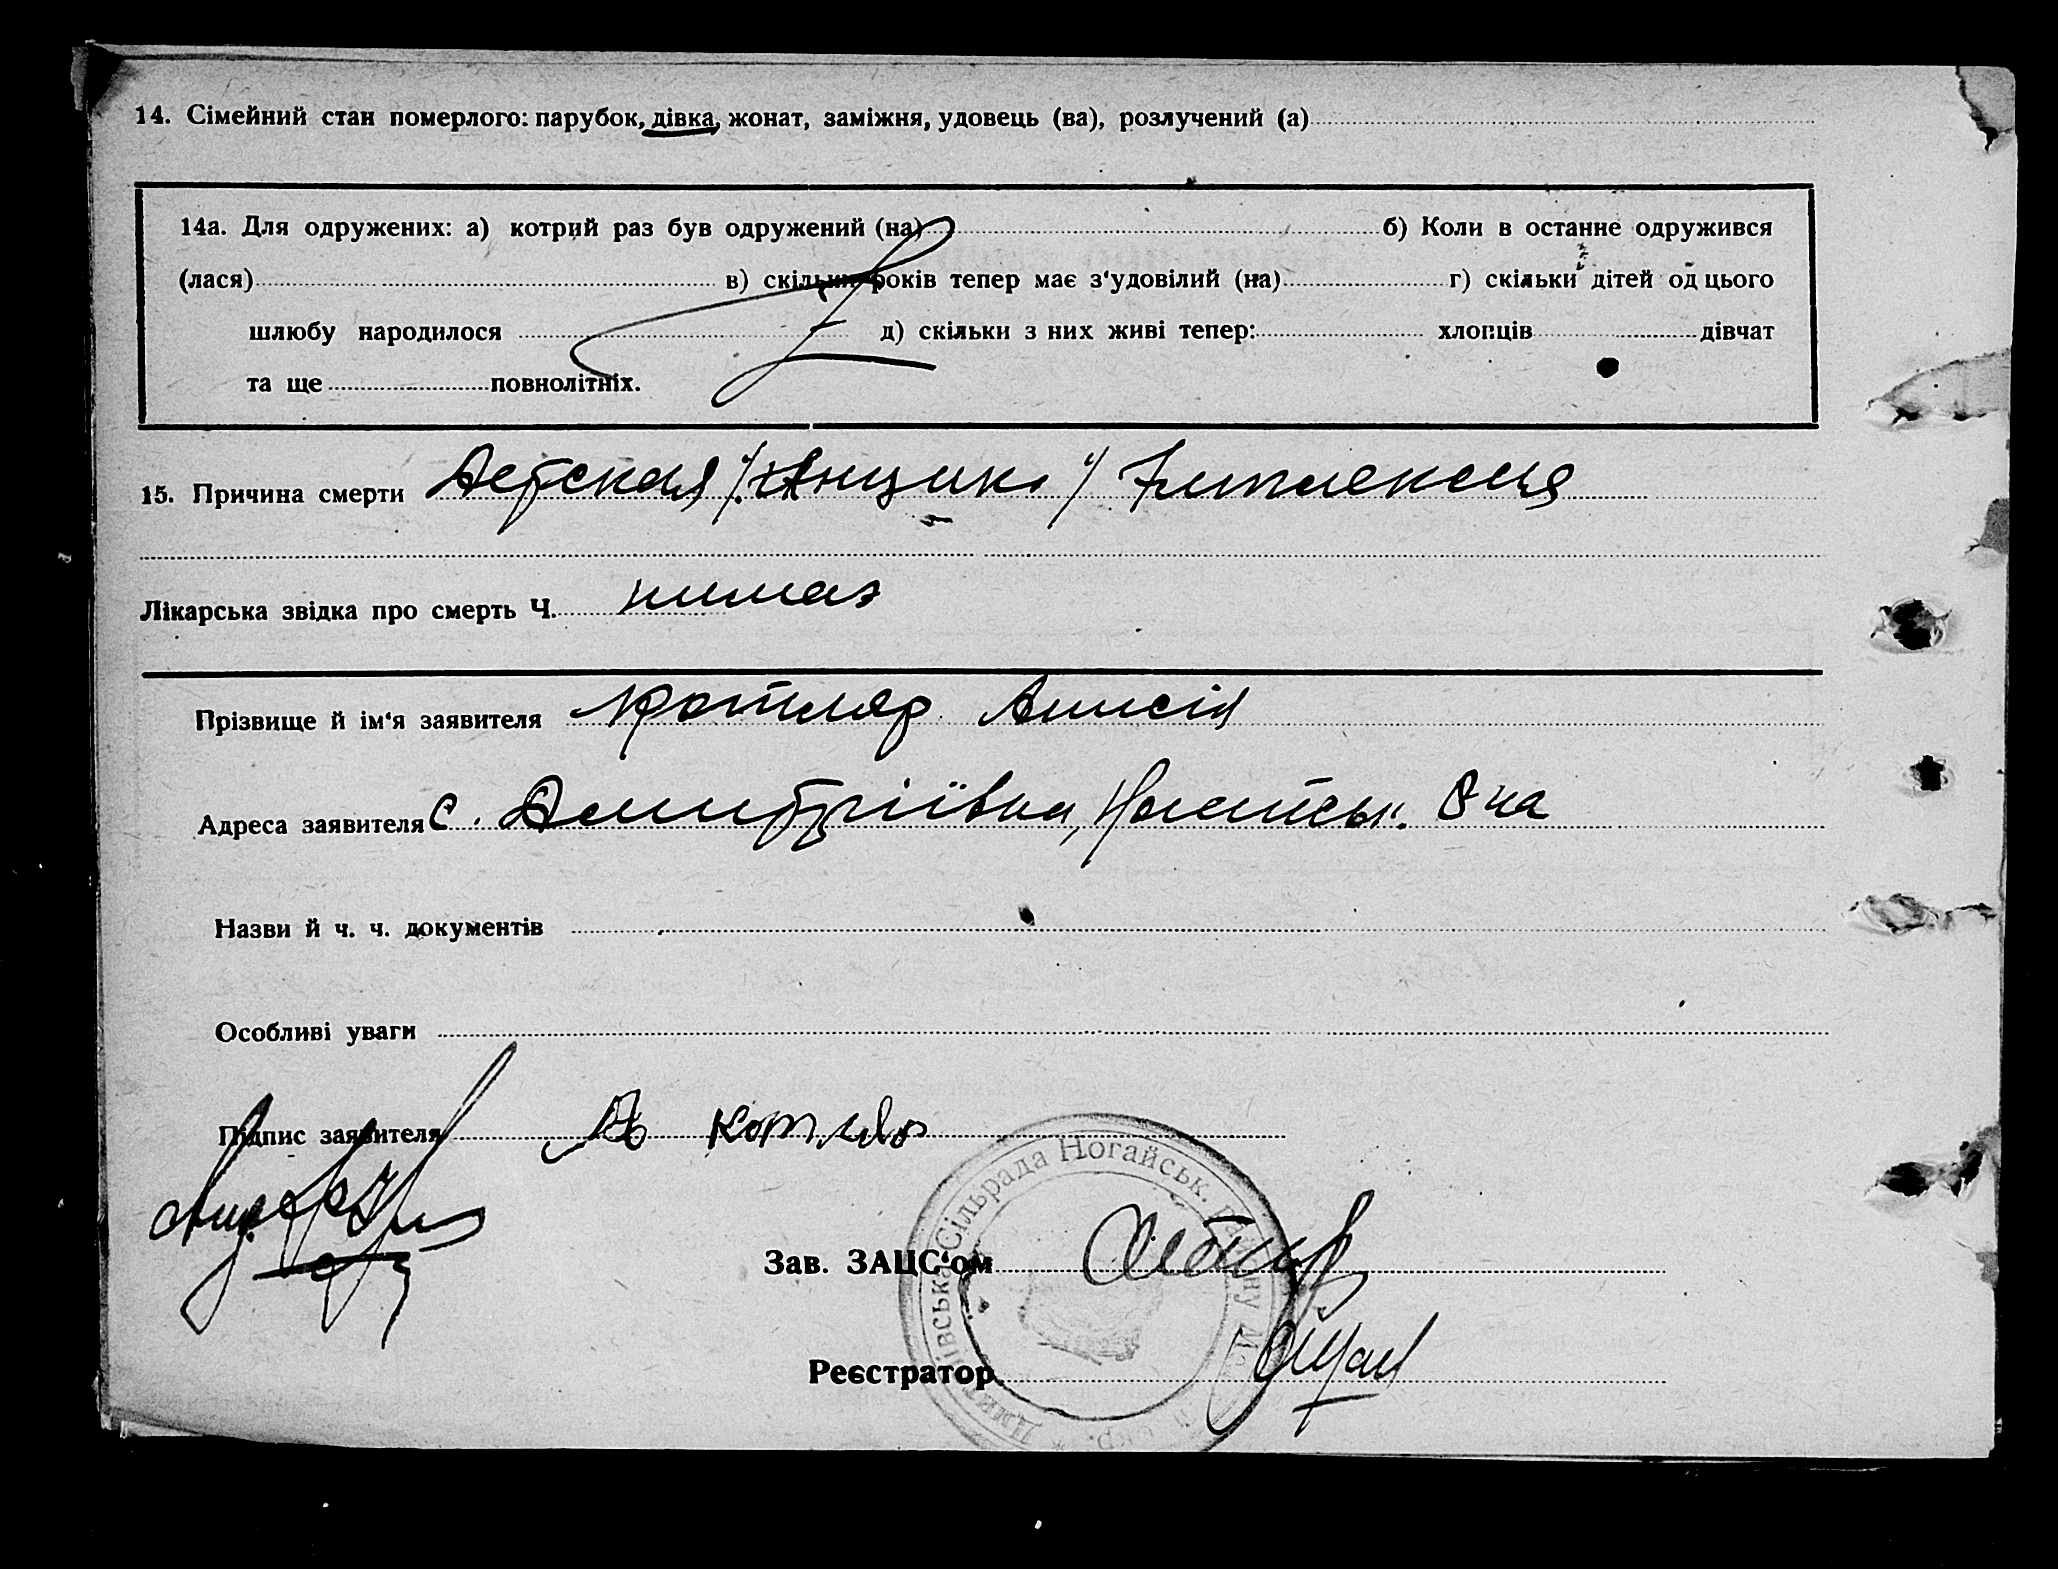 14. Сімейний стан померлого: парубок, дівка, жонат, заміжня, удовець (ва), розлучений (а)
14а. Для одружених: а) котрий раз був одружений (на) б) Коли в останне одружився
(лася) в) скільки років тепер має з'удовілий (на) г) скільки дітей од цього
шлюбу народилося д) скільки з них живі тепер: хлопців дівчат
та ще повнолітніх.
15. Причина смерти Детская
Лікарська звідка про смерть Ч. нимає
Прізвище й ім'я заявителя Котляр Анисія
Адреса заявителя с. Дмитріївка, Ногайськ. Р-на
Назви й ч. ч. документів
Особливі уваги
Підпис заявителя Котляр
Сільрада Ногайськ.
Зав. ЗАЦС'ом
Реєстратор